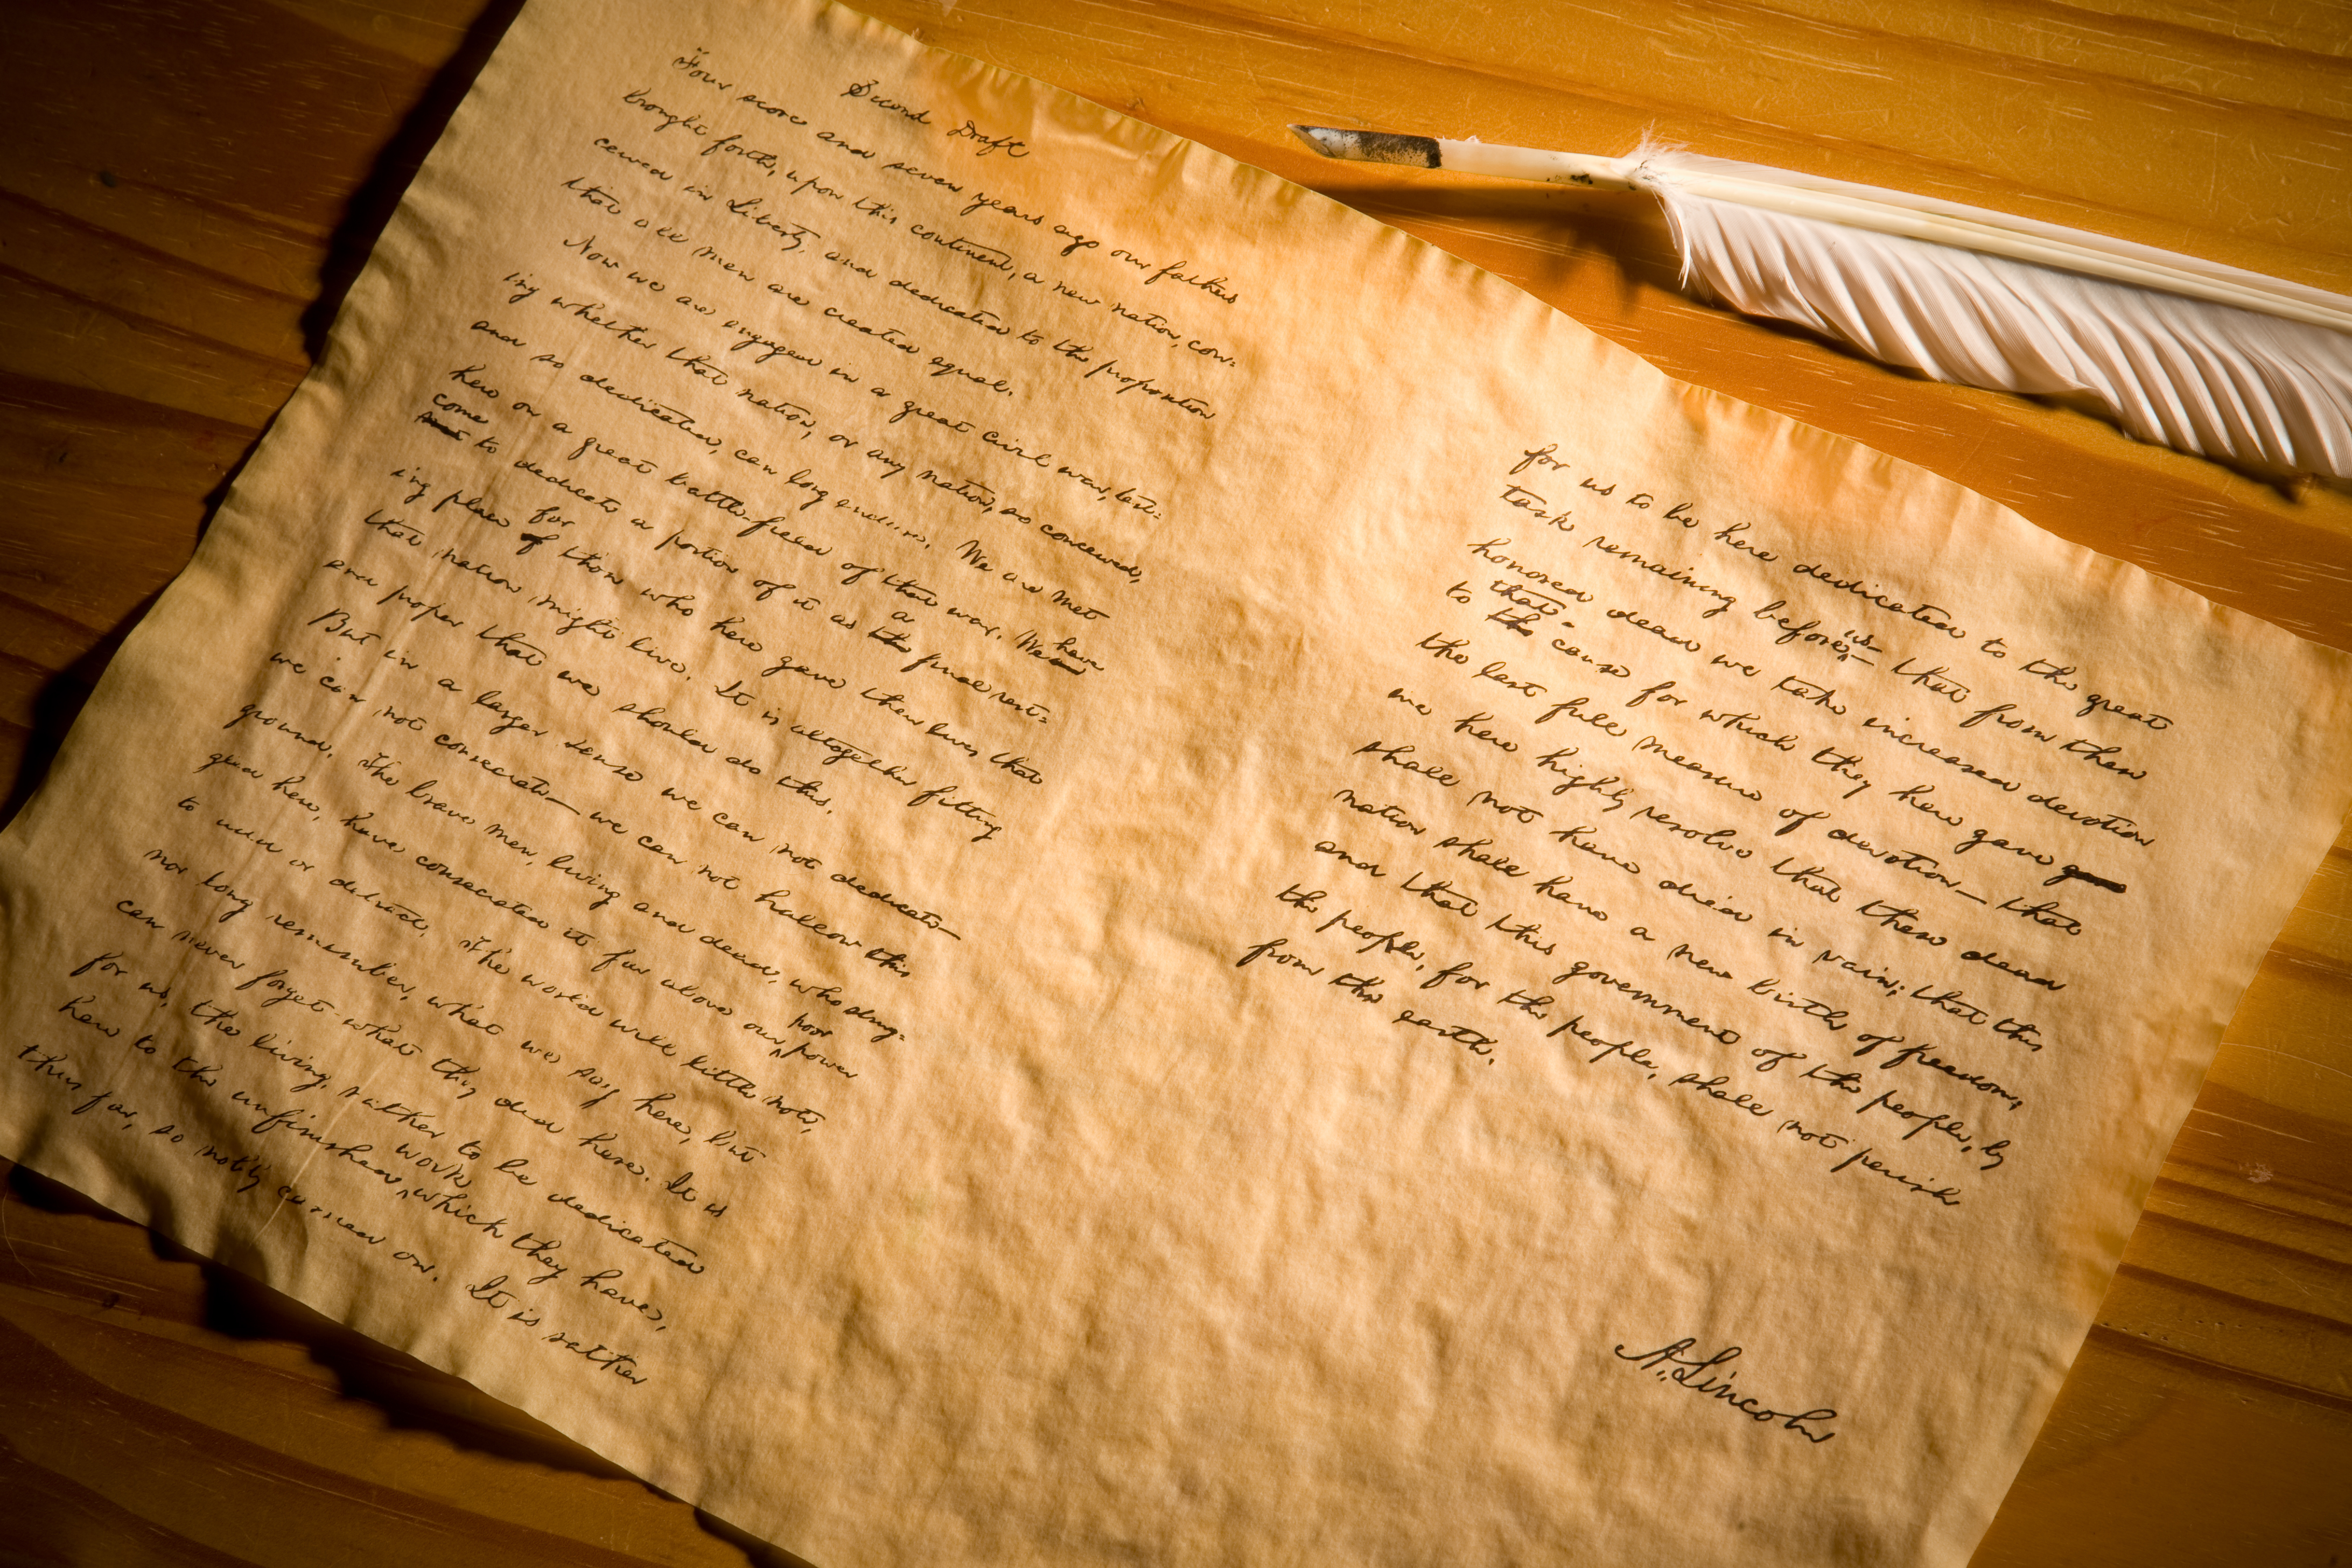 Second Draft
Four score and seven years ago our fathers
brought forth, upon this continent, a new nation, con-
ceived in Liberty, and dedicated to the proposition
that all men are created equal.
Now we are engaged in a great civil war, test-
ing whether that nation, or any nation, so conceived,
and so dedicated, can long endure. We are met
here on a great battle-field of that war. We have
come
are to dedicate a portion of it as a the final rest-
ing place for of those who here gave their lives that
that nation might live. It is altogether fitting
and proper that we should do this.
But in a larger sense we can not dedicate—
we can not consecrate—we can not hallow this
ground. The brave men, living and dead, who strug-
gled here, have consecrated it far above our poor power
to add or detract. The world will little note,
nor long remember, what we say here, but
can never forget what they did here. It is
for us, the living, rather to be dedicated
here to the unfinished work which they have,
thus far, so nobly carried on. It is rather
for us to be here dedicated to the great
task remaining before us— that from these
honored dead we take increased devotion
to that the cause for which they here gave
the last full measure of devotion— that
we here highly resolve that these dead
shall not have died in vain; that this
nation shall have a new birth of freedom;
and that this government of the people, by
the people, for the people, shall not perish
from the earth.
A. Lincoln